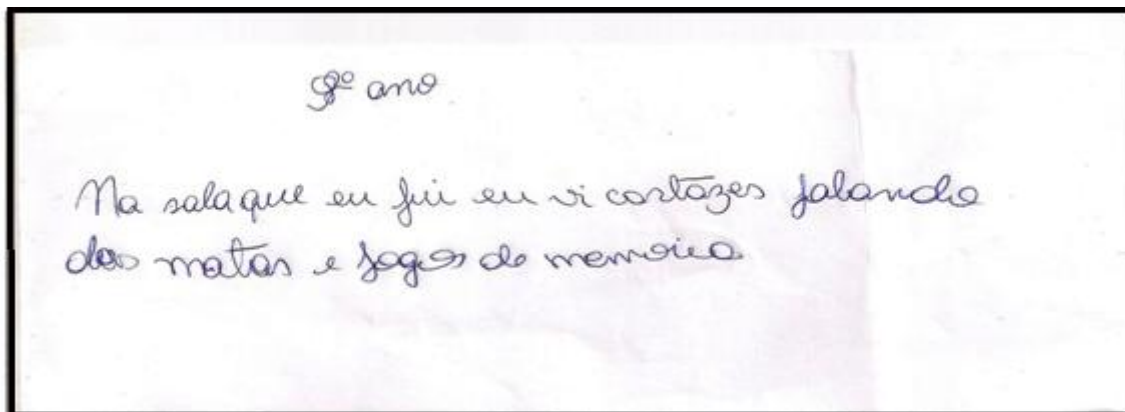 9º ano
Na sala que eu fui eu vi cartazes falando
das matas e jogos de memoria